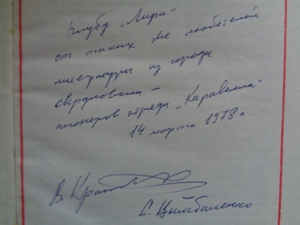 Клубу „Лира"
от таких же любителей
литературы из города
Свердловска —
пионеров отряда „Каравелла"
14 марта 1978 г.
В. Крап
С. Цымбаленко